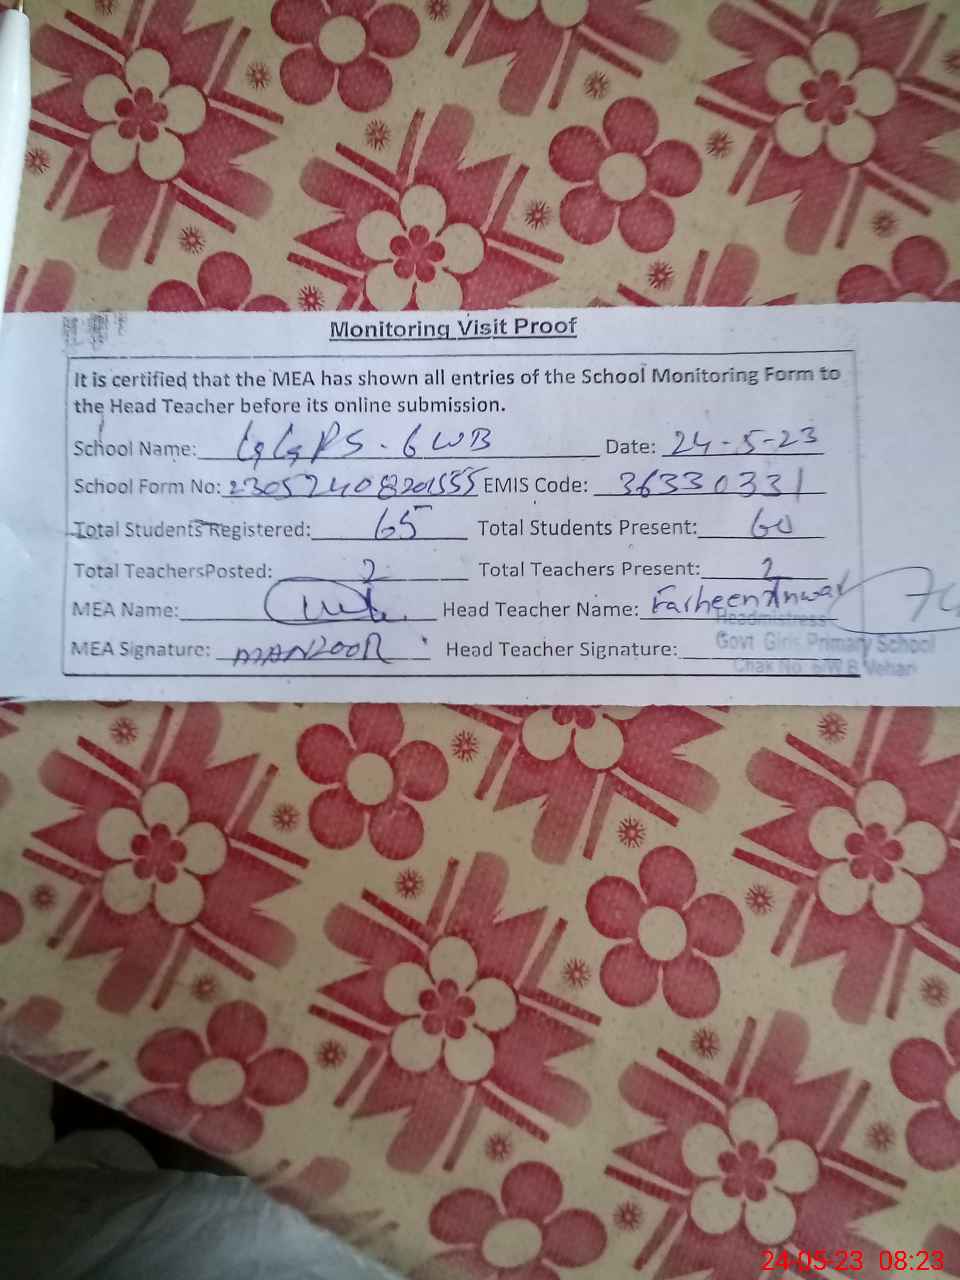 Monitoring Visit Proof
It is certified that the MEA has shown all entries of the School Monitoring Form to
the Head Teacher before its online submission.
School Name: GGPS. 6 WB Date: 24-5-23
School Form No: EMIS Code: 36330331
Total Students Registered: 65 Total Students Present: 60
Total TeachersPosted: 2 Total Teachers Present: 2
MEA Name: Head Teacher Name: Farheen Anwar
Headmistress
MEA Signature: MANZOOR Head Teacher Signature: Govt Girls Primary School
Chak No. 6/W.B Vehari
24-05-23 08:23